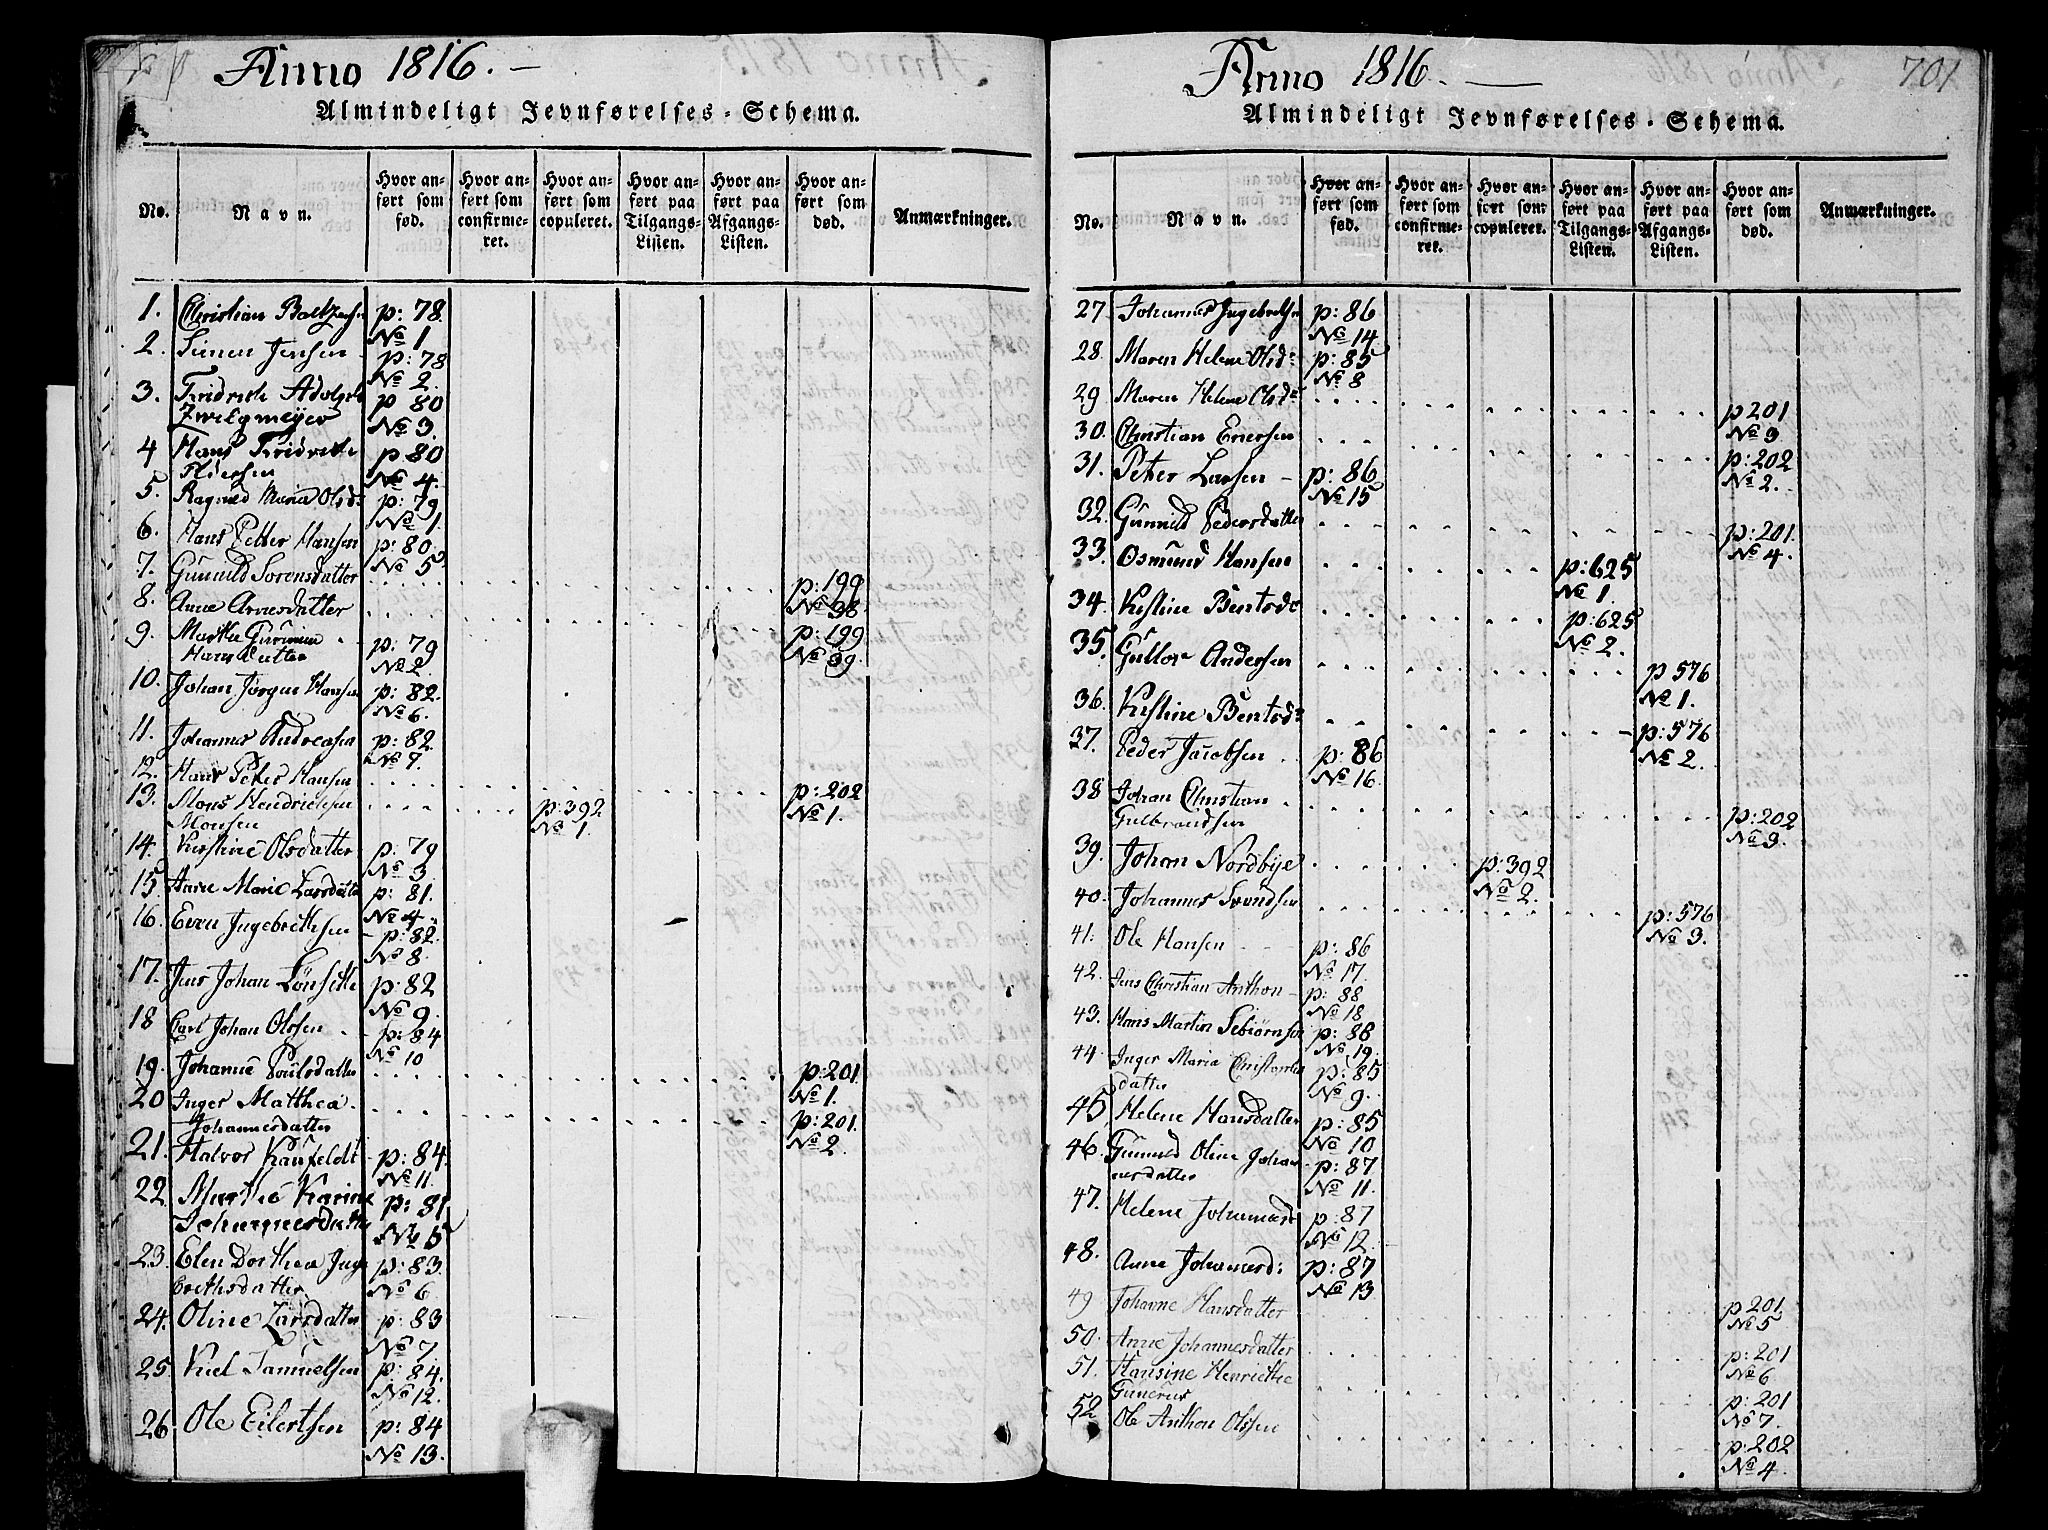 Anno 1816.
Almindeligt Jevnførelses-Schema.
No.
Navn.
Hvor anført som fød.
Hvor anført som confirmeret.
Hvor anført som copuleret.
Hvor anført paa Tilgangs-Listen.
Hvor anført paa Afgangs-Listen.
Hvor anført som død.
Anmærkninger.
1. Christian p: 78. No 1
2. Simen Jensen p: 78 No 2.
3. Fridrich Adolph Zwilgmeyer p 80 No 3.
4 Hans Fridrich p 80 No 4.
5. Ragnild Maria Olsd: p: 79 No 1.
6. Hans Petter Hansen p: 80. No 5
7. Gunnild Sorensdatter p: 199 No 38
8. Anne Arnesdatter p: 199 No 39
9. Marthe Hansdatter p: 79 No 2
10. Johan Jörgen Hansen p: 82. No 6.
11. Johannes Andreasen p: 82. No 7.
12. Hans Peter Hansen p: 202 No 1.
13. Mons Hendrichsen Monsen p: 392 No 1.
14. Kirstine Olsdatter p: 79 No 3
15. Anne Marie Larsdatter p: 81. No 4.
16. Even Ingebrethsen p: 82. No 8.
17. Jens Johan p: 82 No 9.
18 Carl Johan Olssen p: 84 No 10
19. Johanne Poulsdatter p: 201. No 1.
20 Inger Matthea Johannesdatter p: 201. No 2.
21. Halvor Kaufeldt p: 84. No 11.
22. Marthe Karine Johannesdatter p: 81 No 5
23. Elen Dorthea Ingebrethsdatter p: 83. No 6
24. Oline Larsdatter p: 83 No 7.
25. Kiel Samuelsen p: 84. No 12.
26. Ole Eilertsen p: 84 No 13.
Anno 1816.
701
Almindeligt Jevnførelses-Schema.
No.
Navn.
Hvor anført som fød.
Hvor anført som confirmeret.
Hvor anført som copuleret.
Hvor anført paa Tilgangs-Listen.
Hvor anført paa Afgangs-Listen.
Hvor anført som død.
Anmærkninger.
27. Johannes Ingebrethsen p: 86 No 14
28. Maren Helene Olsd: p: 85 No 8
29 Maren Helene Olsd: p 201 No 3
30. Christian Ericsen p: 202 No 2.
31. Peter Larsen p: 86 No 15
32. Gunnild Pedersdatter p: 201. No 4.
33. Osmund Hansen p: 625 No 1.
34. Kirstine Bentsd: p: 625 No 2.
35. Gullov Andersen p 576 No 1.
36. Kirstine Bentsd: p: 576 No 2.
37. Peder Jacobsen p: 86 No 16.
38 Johan Christian Gulbrandsen p: 202 No 3.
39. Johan Nordbye p: 392 No 2.
40. Johannes Svendsen p: 576 No 3.
41. Ole Hansen p: 86 No 17.
42. Jens Christian Anthon p: 88 No 18
43. Hans Martin p: 88 No 19.
44 Inger Maria datter p: 85 No 9.
45. Helene Hansdatter p: 85 No 10
46. Gunnild Oline Johannesdatter p: 87 No 11.
47. Helene Johannesd p: 87 No 12.
48. Anne Johannesd: p: 87 No 13
49 Johanne Hansdatter p 201. No 5
50. Anne Johannesdatter p: 201 No 6
51. Hansine Henriette Gunerus p: 201 No 7.
52 Ole Anthon Olssen p: 202 No 4.